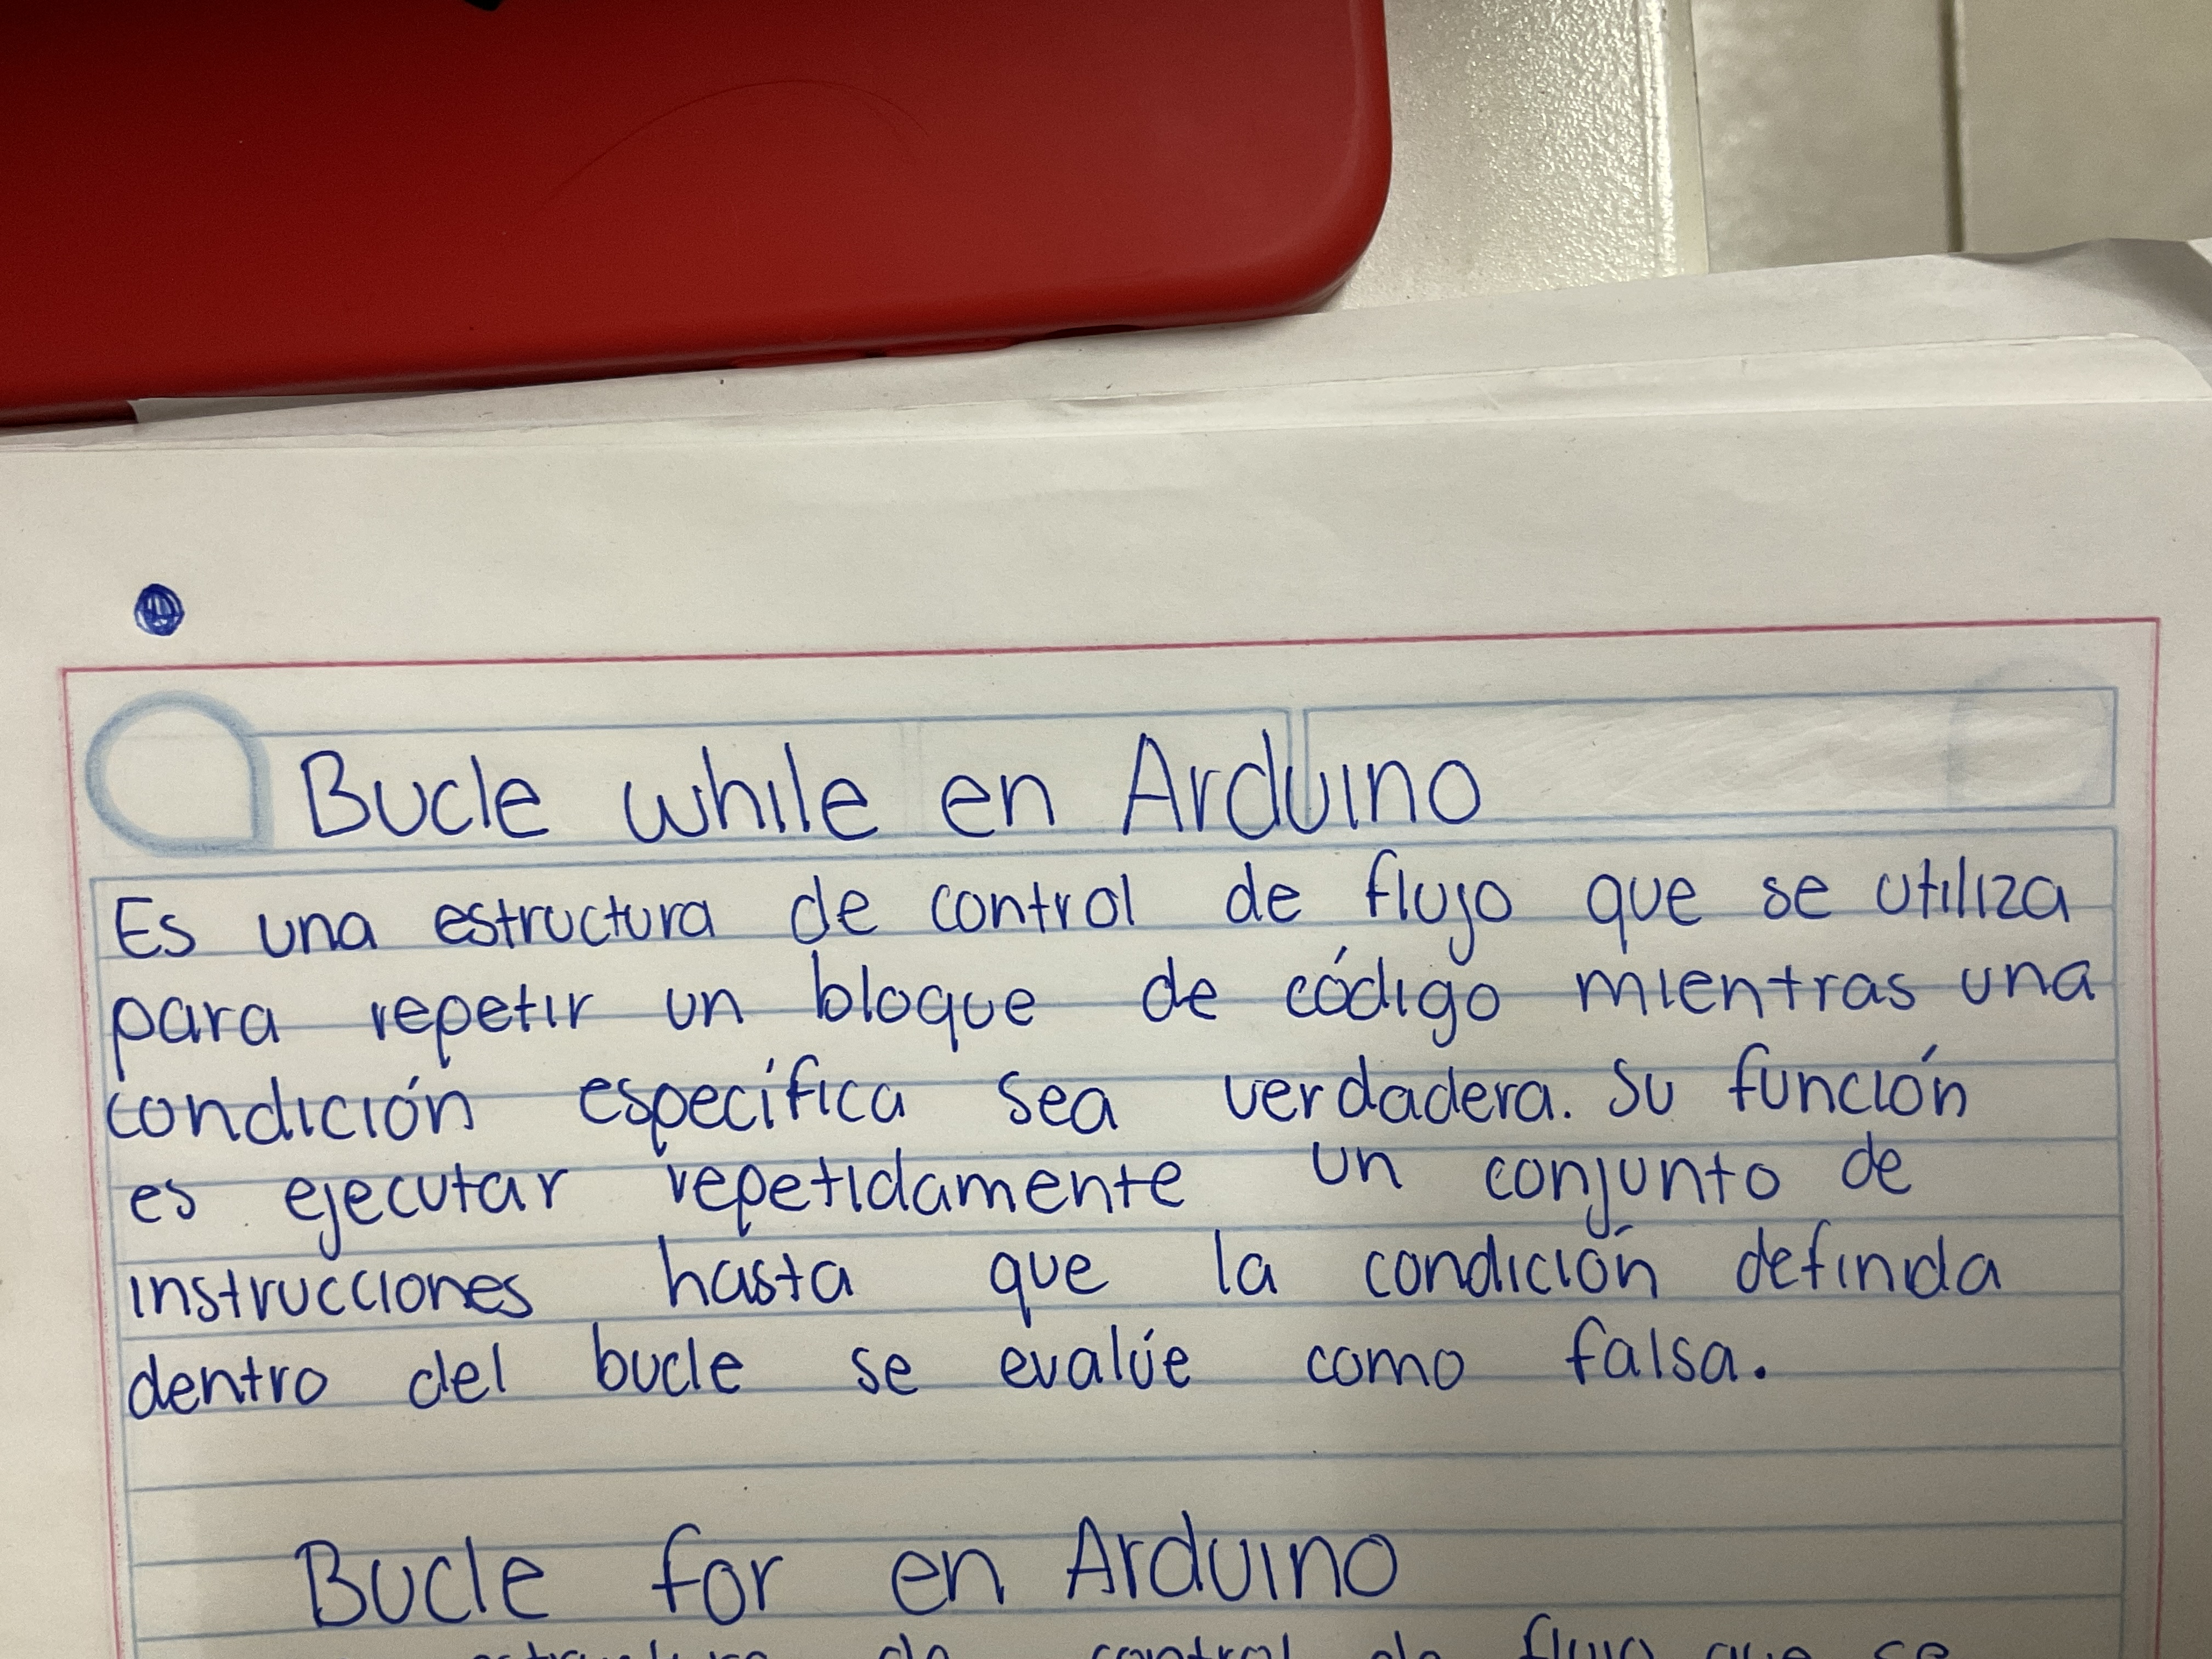 Bucle while en Arduino
Es una estructura de control de flujo que se utiliza
para repetir un bloque de código mientras una
condición específica sea verdadera. Su función
es ejecutar repetidamente un conjunto de
instrucciones hasta que la condición definida
dentro del bucle se evalúe como falsa.
Bucle for en Arduino
estructura de control de flujo que se